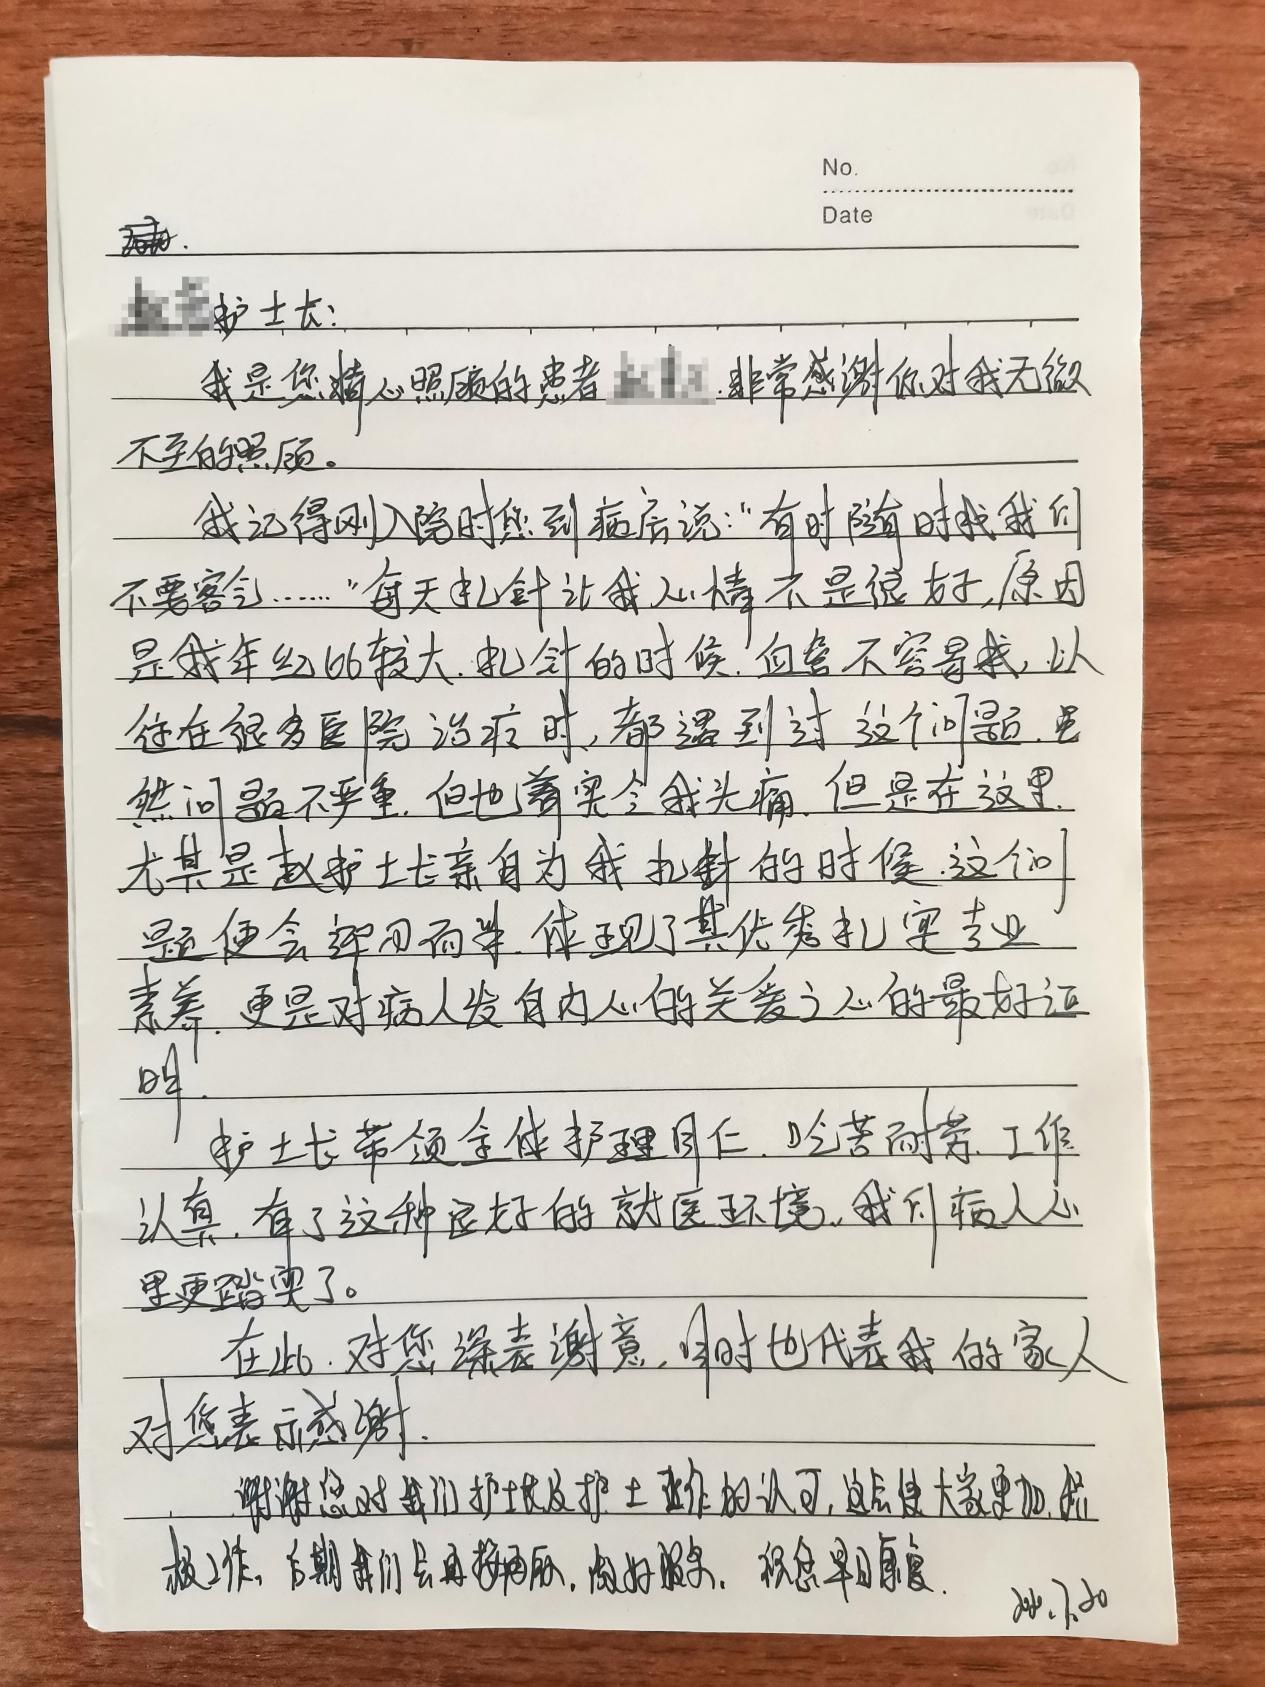 No.
Date
护士长:
我是您精心照顾的患者 .非常感谢你对我无微
不至的照顾。
我记得刚入院时您到病房说:“有时随时找我们
不要客气……”每天扎针让我心情不是很好,原因
是我年纪66较大.扎针的时候.血管不容易找,以
往在很多医院治疗时,都遇到过这个问题.虽
然问题不严重.但也着实令我头痛.但是在这里.
尤其是赵护士长亲自为我扎针的时候.这个问
题便会迎刃而解.体现了其优秀扎实专业
素养.更是对病人发自内心的关爱之心的最好证
明.
护士长带领全体护理同仁.吃苦耐劳.工作
认真.有了这种良好的就医环境.我们病人心
里更踏实了。
在此.对您深表谢意,同时也代表我的家人
对您表示感谢.
谢谢您对我们护士长及护士工作的认可,这会使大家更加积
极工作.后期我们会再接再厉,做好服务.祝您早日康复.
7.20